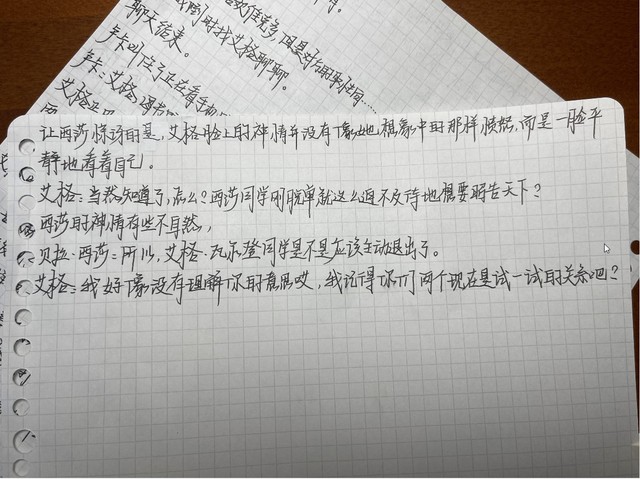 聊天结束。
时找艾格聊聊。
卢卡叫住了正在看手机
卢卡：艾格，
让西莎惊讶的是，艾格脸上的神情并没有像她想象中的那样愤怒，而是一脸平
静地看着自己。
艾格：当然知道了，怎么？西莎同学刚脱单就这么迫不及待地想要昭告天下？
西莎的神情有些不自然，
贝拉·西莎：所以，艾格·瓦尔登同学是不是应该主动退出了。
艾格：我好像没有理解你的意思哎，我记得你们两个现在是试一试的关系吧？